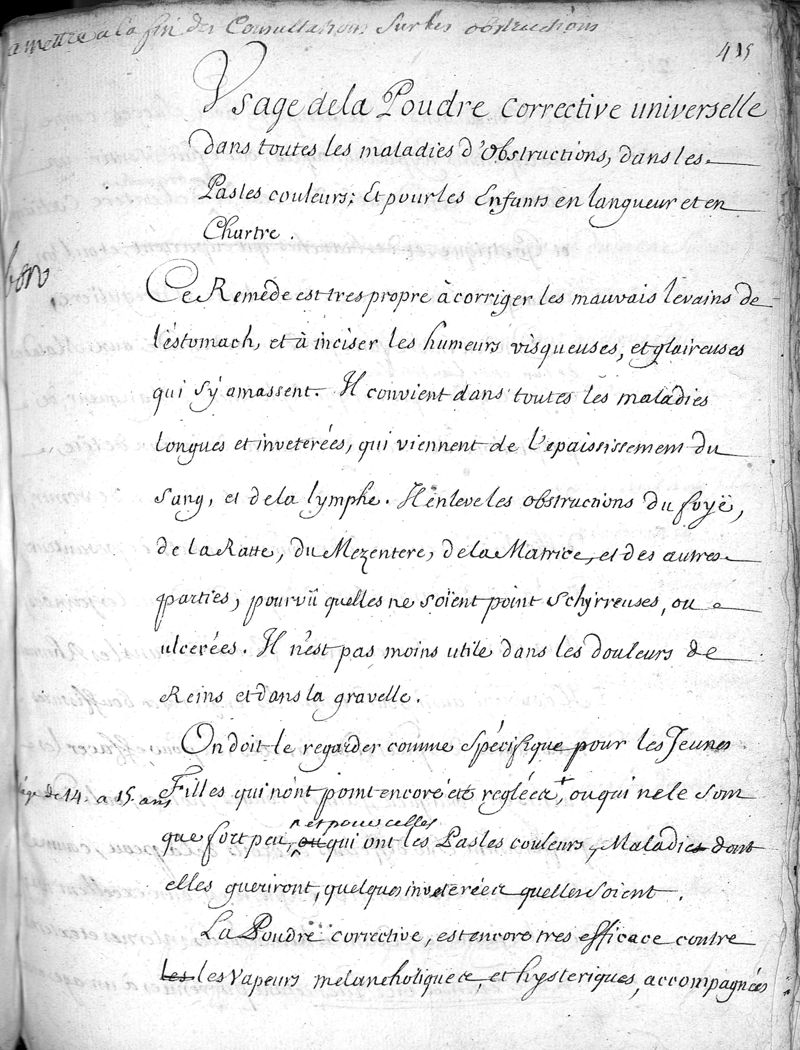 a mettre a la fin des Consultations sur les obstructions
415
Usage de la Poudre corrective universelle
dans toutes les maladies d'Obstructions, dans les
Pasles couleurs; Et pour les Enfants en langueur et en
Chartre.
bon
Ce Remede est tres propre à corriger les mauvais levains de
l'estomach, et à inciser les humeurs visqueuses, et glaireuses
qui s'y amassent. Il convient dans toutes les maladies
longues et inveterées, qui viennent de l'epaississement du
sang, et de la lymphe. Il enleve les obstructions du foyë,
de la Ratte, du Mezentere, de la Matrice, et des autres
parties, pourvû quelles ne soïent point schyrreuses, ou
ulcerées. Il n'est pas moins utile dans les douleurs de
Reins et dans la gravelle.
On doit le regarder comme spécifique pour les Jeunes
âge de 14. a 15. ans
Filles qui n'ont point encore été reglées +, ou qui ne le sont
et pour celles
que fort peu, ou qui ont les Pasles couleurs, Maladies dont
elles gueriront, quelques inveterées quelles soient.
La Poudre corrective, est encore tres efficace contre
les les vapeurs melancholiques, et hysteriques, accompagnées